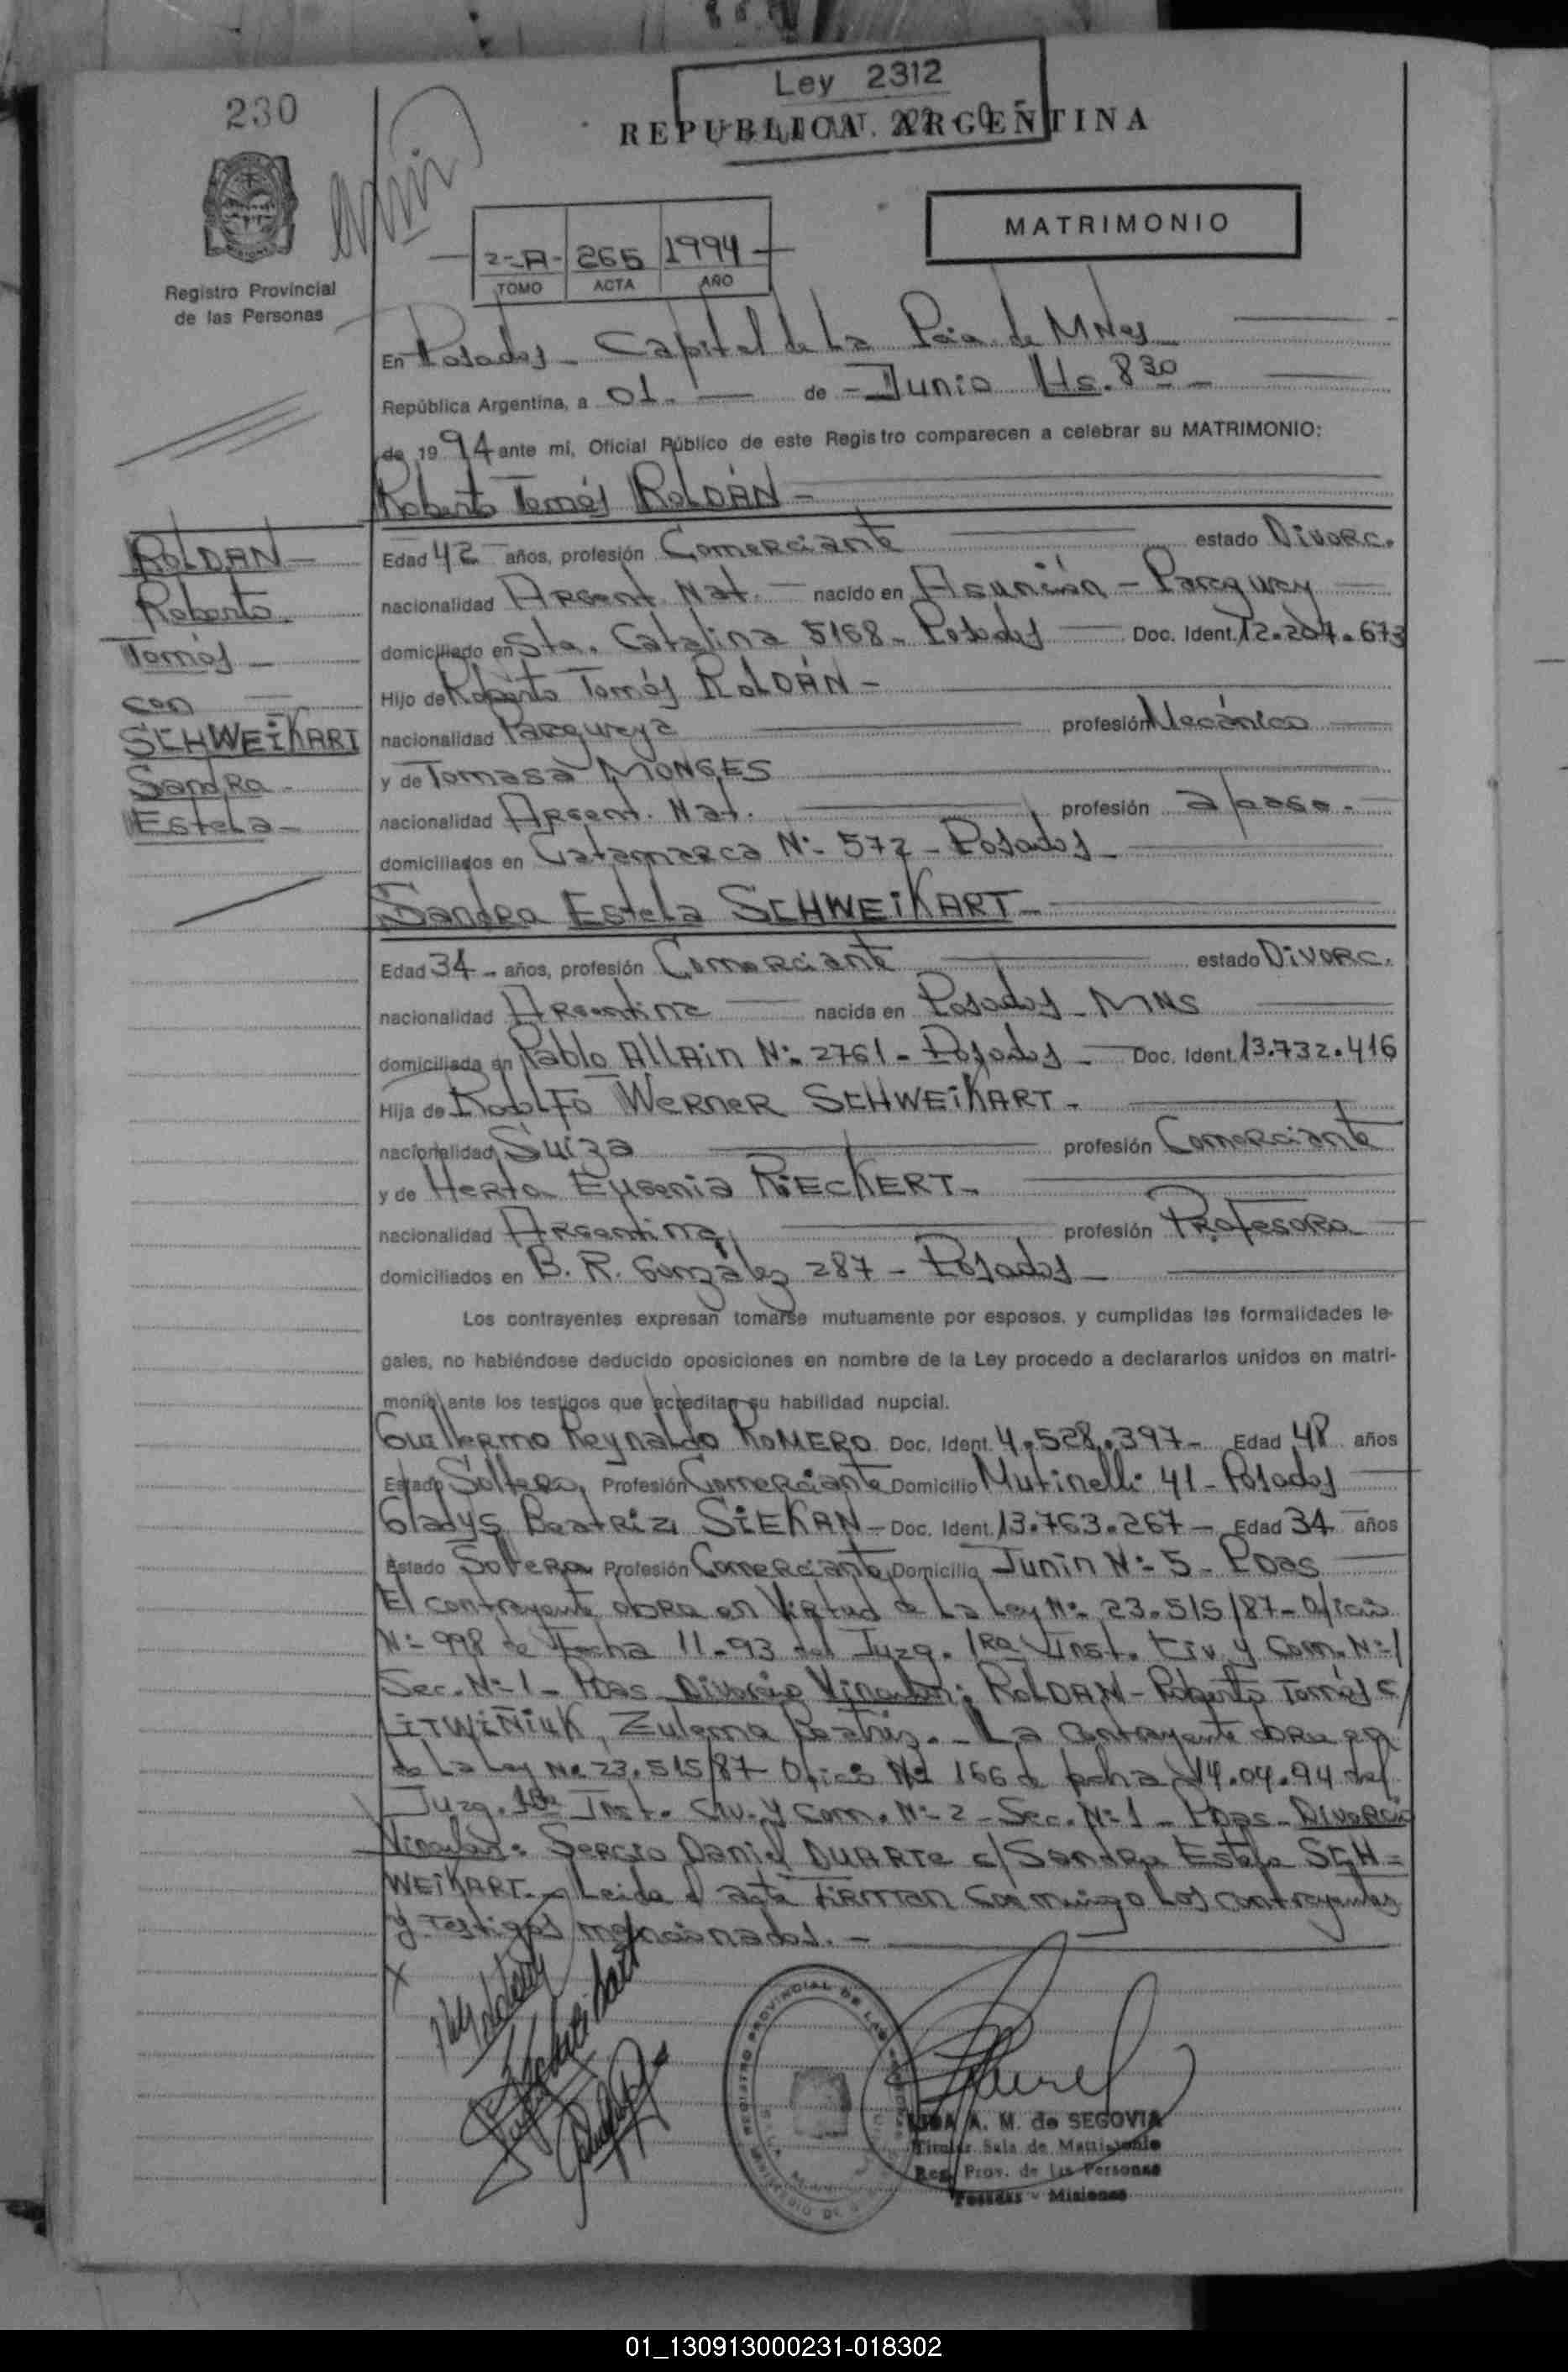 230
Ley 2312
REPUBLICA ARGENTINA
MATRIMONIO
2-A- 265 1994
TOMO ACTA AÑO
Registro Provincial
de las Personas
En Posadas - Capital de La Pcia. de MNes
República Argentina, a 01. — de - Junio Hs. 8 30 -
de 19 94 ante mi, Oficial Público de este Registro comparecen a celebrar su MATRIMONIO:
Roberto Tomás ROLDÁN -
ROLDAN -
Roberto
Tomás -
con
SCHWEIKART
Sandra -
Estela -
Edad 42 años, profesión Comerciante estado Divorc.
nacionalidad Argent. Nat. - nacido en Asunción - Paraguay
domiciliado en Sta. Catalina 5168 - Posadas - Doc. Ident. 12.204.673
Hijo de Roberto Tomás ROLDÁN -
nacionalidad Paraguaya profesión Mecánico
y de Tomasa MONGES
nacionalidad Argent. Nat. profesión
domiciliados en Catamarca Nº- 572 - Posadas -
Sandra Estela SCHWEIKART -
Edad 34 - años, profesión Comerciante estado Divorc.
nacionalidad Argentina nacida en Posadas - MNS
domiciliada en Pablo Allain Nº- 2761 - Posadas - Doc. Ident. 13.732.416
Hija de Rodolfo Werner SCHWEIKART -
nacionalidad Suiza profesión Comerciante
y de Herta Eugenia RIECKERT -
nacionalidad Argentina profesión Profesora
domiciliados en B. R. González 287 - Posadas -
Los contrayentes expresan tomarse mutuamente por esposos, y cumplidas las formalidades le-
gales, no habiéndose deducido oposiciones en nombre de la Ley procedo a declararlos unidos en matri-
monio ante los testigos que acreditan su habilidad nupcial.
Guillermo Reynaldo ROMERO Doc. Ident. 4.528.397 - Edad 48 años
Estado Soltero, Profesión Comerciante Domicilio Mutinelli 41 - Posadas
Gladys Beatriz SIEKAN - Doc. Ident. 13.763.267 - Edad 34 años
Estado Soltera Profesión Comerciante Domicilio Junín Nº- 5 - Pdas
El contrayente obra en Virtud de La Ley Nº- 23.515/87 - Oficio
Nº- 998 de fecha 11-93 del Juzg. 1Ra Inst. Civ. y Com. Nº-1
Sec. Nº-1 - Pdas - Divorcio Vincular: ROLDAN - Roberto Tomás c/
LITWIÑIUK, Zulema Beatriz. - La Contrayente obra en
de La Ley Nº 23.515/87 Oficio Nº 166 de fecha 14.04.94 del
Juzg. 1Ra Inst. Civ. y Com. Nº- 2 - Sec. Nº-1 - Pdas - Divorcio
Vincular: Sergio Daniel DUARTE c/ Sandra Estela SCH=
WEIKART. - Leida el acta firman conmigo Los contrayentes
y Testigos mencionados. -
X
REGISTRO PROVINCIAL DE LAS PERSONAS
A. M. de SEGOVIA
Titular Sala de Matrimonio
Reg. Prov. de las Personas
Posadas - Misiones
01_130913000231-018302